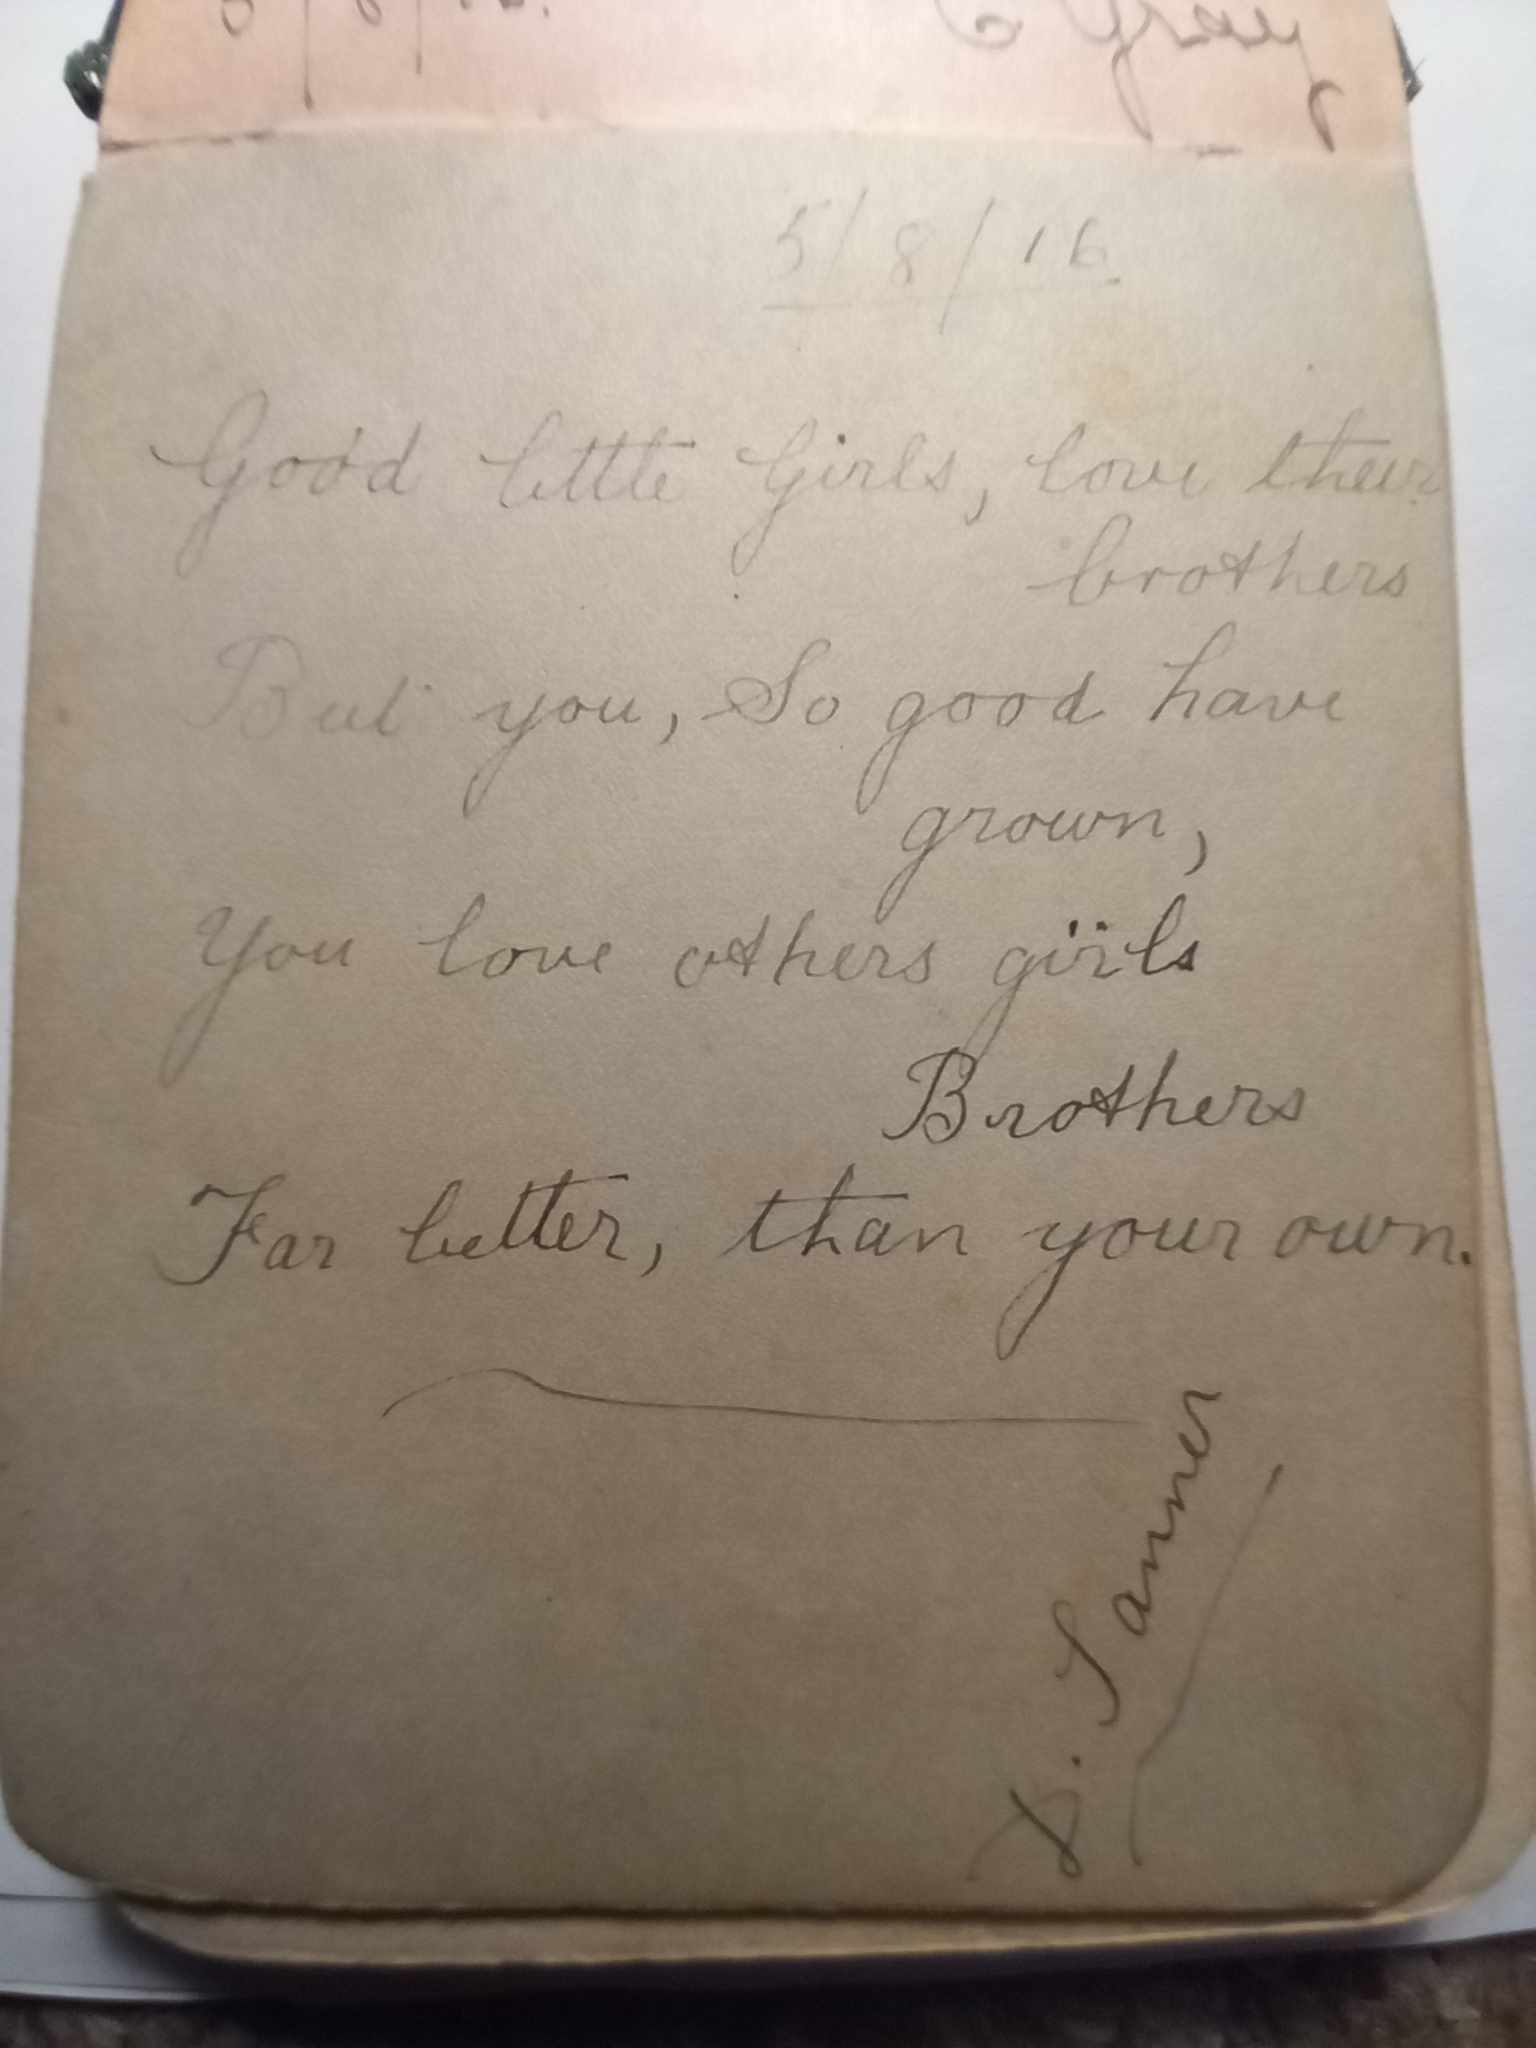 5/8/16.
C Gray
5/8/16.
Good little Girls, love their
brothers
But you, So good have
grown,
You love others girls
Brothers
Far better, than your own.
D. Tanner